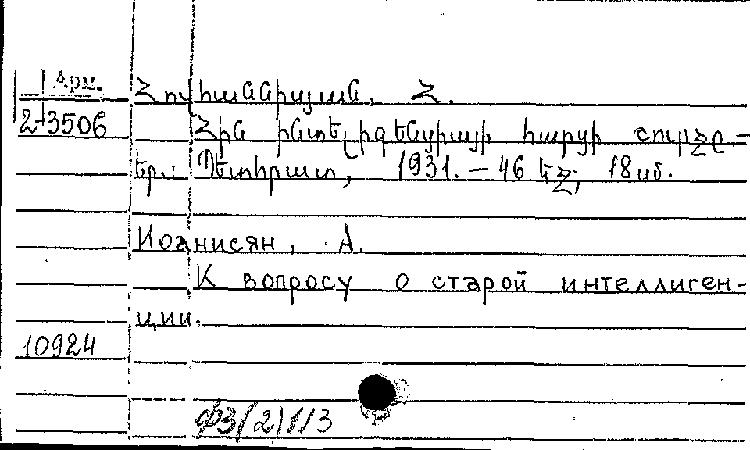 Арм.
Հովհաննիսյան, Հ.
2-3506
Հին ինտելիգենցիայի հարցի շուրջը –
Եր.: Պետհրատ, 1931. – 46 էջ, 18սմ.
Иоанисян, А.
К вопросу о старой интеллиген-
ции.
10924
ФЗ(2)1/3